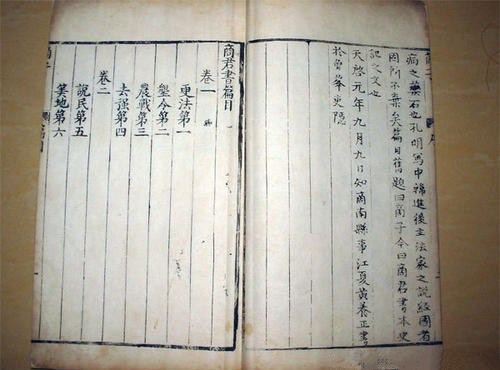 病之藥石也孔明寫申韓進後主法家之說經國者
固所不棄矣篇目舊題曰商子今曰商君書本史
記之文也
天啓元年九月九日知商南縣事江夏黃養正書
於峯吏隱
商君書篇目
卷一
更法第一
墾令第二
農戰第三
去强第四
卷二
說民第五
筭地第六